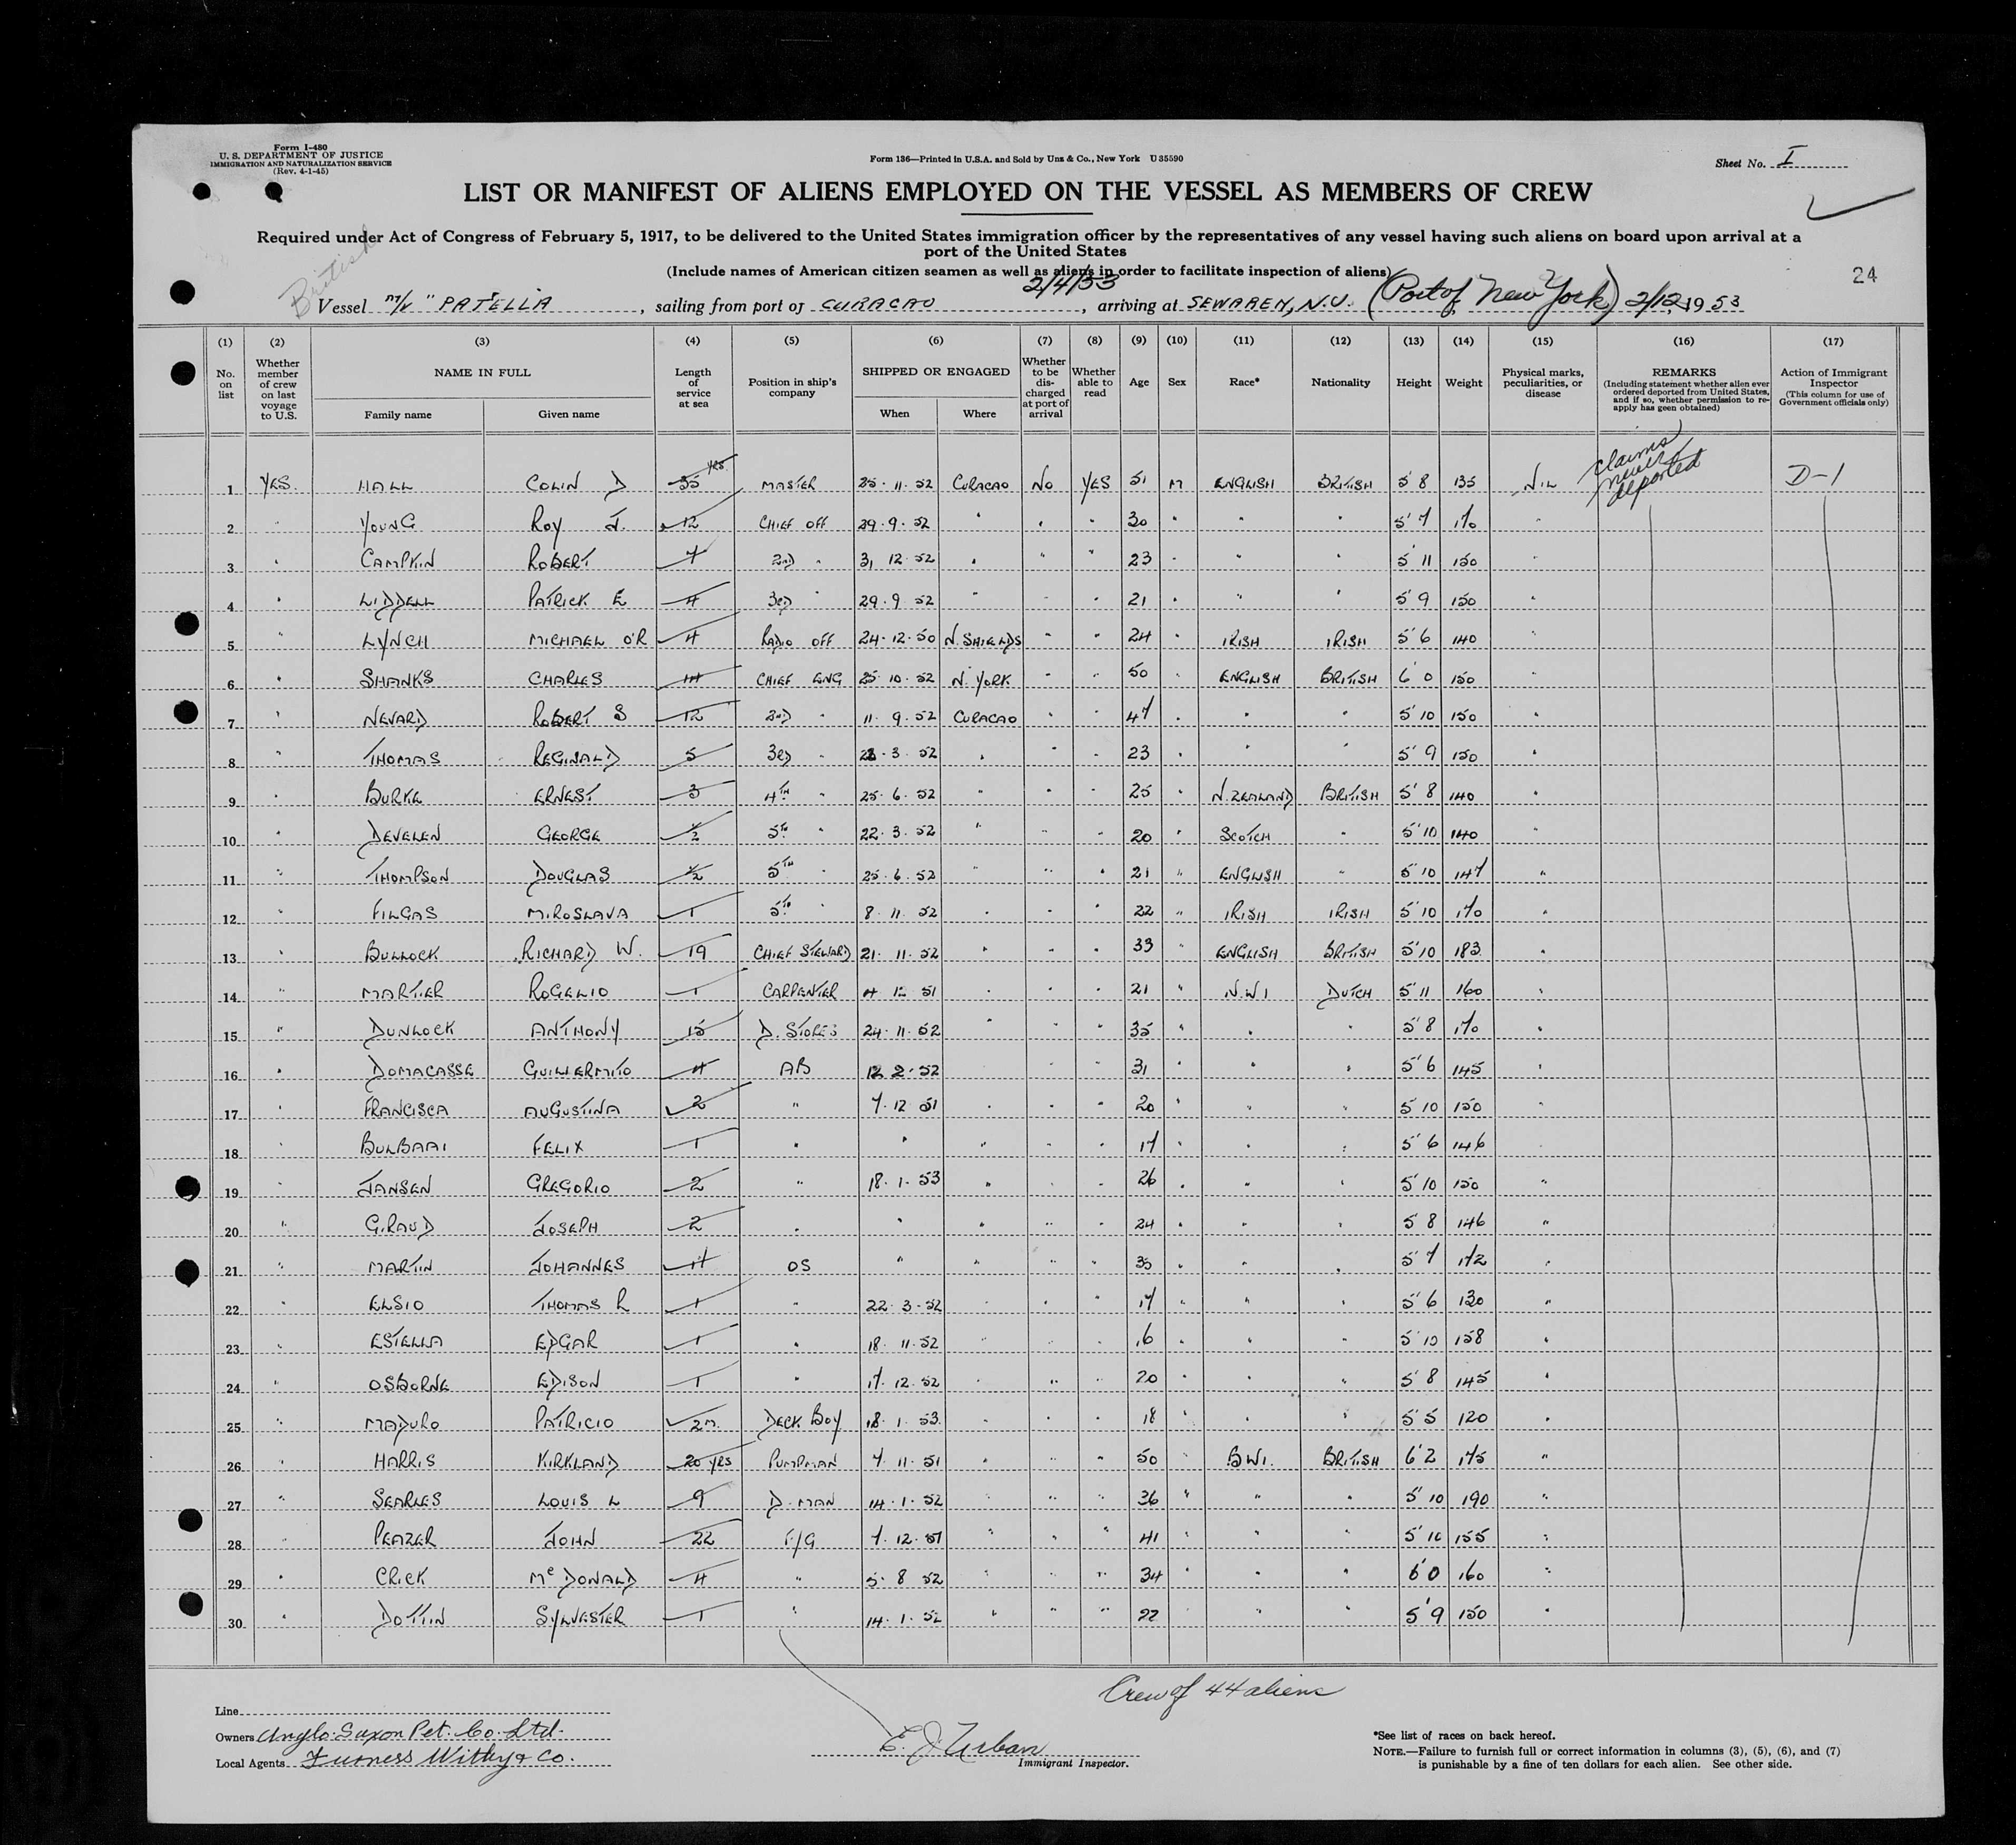 Form I-480
U. S. DEPARTMENT OF JUSTICE
IMMIGRATION AND NATURALIZATION SERVICE
(Rev. 4-1-45)
Form 136—Printed in U.S.A. and Sold by Unz & Co., New York U 35590
Sheet No. I
LIST OR MANIFEST OF ALIENS EMPLOYED ON THE VESSEL AS MEMBERS OF CREW
Required under Act of Congress of February 5, 1917, to be delivered to the United States immigration officer by the representatives of any vessel having such aliens on board upon arrival at a
port of the United States
(Include names of American citizen seamen as well as aliens in order to facilitate inspection of aliens)
24
British
2/4/53
Vessel M/V "PATELLA , sailing from port of CURACAO , arriving at SEWAREN, N.J. (Port of New York) 2/12, 1953
(1) (2) (3) (4) (5) (6) (7) (8) (9) (10) (11) (12) (13) (14) (15) (16) (17)
No. on list
Whether member of crew on last voyage to U.S.
NAME IN FULL
Family name Given name
Length of service at sea
Position in ship's company
SHIPPED OR ENGAGED
When Where
Whether to be dis- charged at port of arrival
Whether able to read
Age
Sex
Race*
Nationality
Height
Weight
Physical marks, peculiarities, or disease
REMARKS
(Including statement whether alien ever ordered deported from United States, and if so, whether permission to re- apply has geen obtained)
Action of Immigrant Inspector
(This column for use of Government officials only)
claims never deported
1 YES. HALL COLIN D 35 YRS. MASTER 25·11·52 CURACAO NO YES 51 M ENGLISH BRITISH 5'8 135 NIL D-1
2 " YOUNG ROY J. 12 CHIEF OFF 29·9·52 " " " 30 " " " 5'7 170 "
3 " CAMPKIN ROBERT 7 2ND " 3, 12·52 " " " 23 " " " 5'11 150 "
4 " LIDDELL PATRICK E 4 3RD " 29·9·52 " " " 21 " " " 5'9 150 "
5 " LYNCH MICHAEL O'R 4 RADIO OFF 24·12·50 N. SHIELDS " " 24 " IRISH IRISH 5'6 140 "
6 " SHANKS CHARLES CHIEF ENG 25·10·52 N. YORK " " 50 " ENGLISH BRITISH 6'0 150 "
7 " NEVARD ROBERT S 12 2ND " 11·9·52 CURACAO " " 47 " " " 5'10 150 "
8 " THOMAS REGINALD 5 3RD " 3·52 " " " 23 " " " 5'9 150 "
9 " BURKE ERNEST 3 4TH " 25·6·52 " " " 25 " N. ZEALAND BRITISH 5'8 140 "
10 " DEVELEN GEORGE ½ 5TH " 22·3·52 " " " 20 " SCOTCH " 5'10 140 "
11 " THOMPSON DOUGLAS ½ 5TH " 25·6·52 " " " 21 " ENGLISH " 5'10 147 "
12 " FILGAS MIROSLAVA 1 5TH " 8·11·52 " " " 22 " IRISH IRISH 5'10 170 "
13 " BULLOCK RICHARD W. 19 CHIEF STEWARD 21·11·52 " " " 33 " ENGLISH BRITISH 5'10 183 "
14 " MARTIER ROGELIO 1 CARPENTER 4 12 51 " " " 21 " N.W.I DUTCH 5'11 160 "
15 " DUNLOCK ANTHONY 15 D. STORES 24·11·52 " " " 35 " " " 5'8 170 "
16 " DOMACASSE GUILLERMITO 4 AB 12 2·52 " " 31 " " " 5'6 145 "
17 " FRANCISCA AUGUSTINA 2 " 7·12 51 " " " 20 " " " 5'10 150 "
18 " BULBAAI FELIX 1 " " " " " 17 " " " 5'6 146
19 " JANSEN GREGORIO 2 " 18·1·53 " " " 26 " " " 5'10 150 "
20 " GIRAUD JOSEPH 2 " " " " " 24 " " " 5'8 146 "
21 " MARTIN JOHANNES OS " " " " " " " 5'7 172 "
22 " ELSIO THOMAS R 1 " 22·3·52 " " " 17 " " " 5'6 130 "
23 " ESTELLA EDGAR 1 " 18·11·52 " " " 16 " " " 5'10 158 "
24 " OSBORNE EDISON 1 " 17·12·52 " " " 20 " " " 5'8 145 "
25 " MADURO PATRICIO 2M. DECK BOY 18·1·53 " " " 18 " " " 5'5 120 "
26 " HARRIS KIRKLAND 20 YRS PUMPMAN 7·11·51 " " " 50 " B.W.I. BRITISH 6'2 175 "
27 " SEARLES LOUIS L 9 D. MAN 14·1·52 " " " 36 " " " 5'10 190 "
28 " PEAZER JOHN 22 F/G 7·12·51 " " " 41 " " " 5'10 155 "
29 " CRICK McDONALD 4 " 5·8 52 " " " 34 " " " 6'0 160 "
30 " DOTTIN SYLVESTER 1 " 14·1·52 " " " 22 " " " 5'9 150 "
Crew of 44 aliens
Line
Owners Anglo-Saxon Pet. Co. Ltd.
Local Agents Furness Withy & Co.
E. J. Urban
Immigrant Inspector.
*See list of races on back hereof.
NOTE.—Failure to furnish full or correct information in columns (3), (5), (6), and (7)
is punishable by a fine of ten dollars for each alien. See other side.